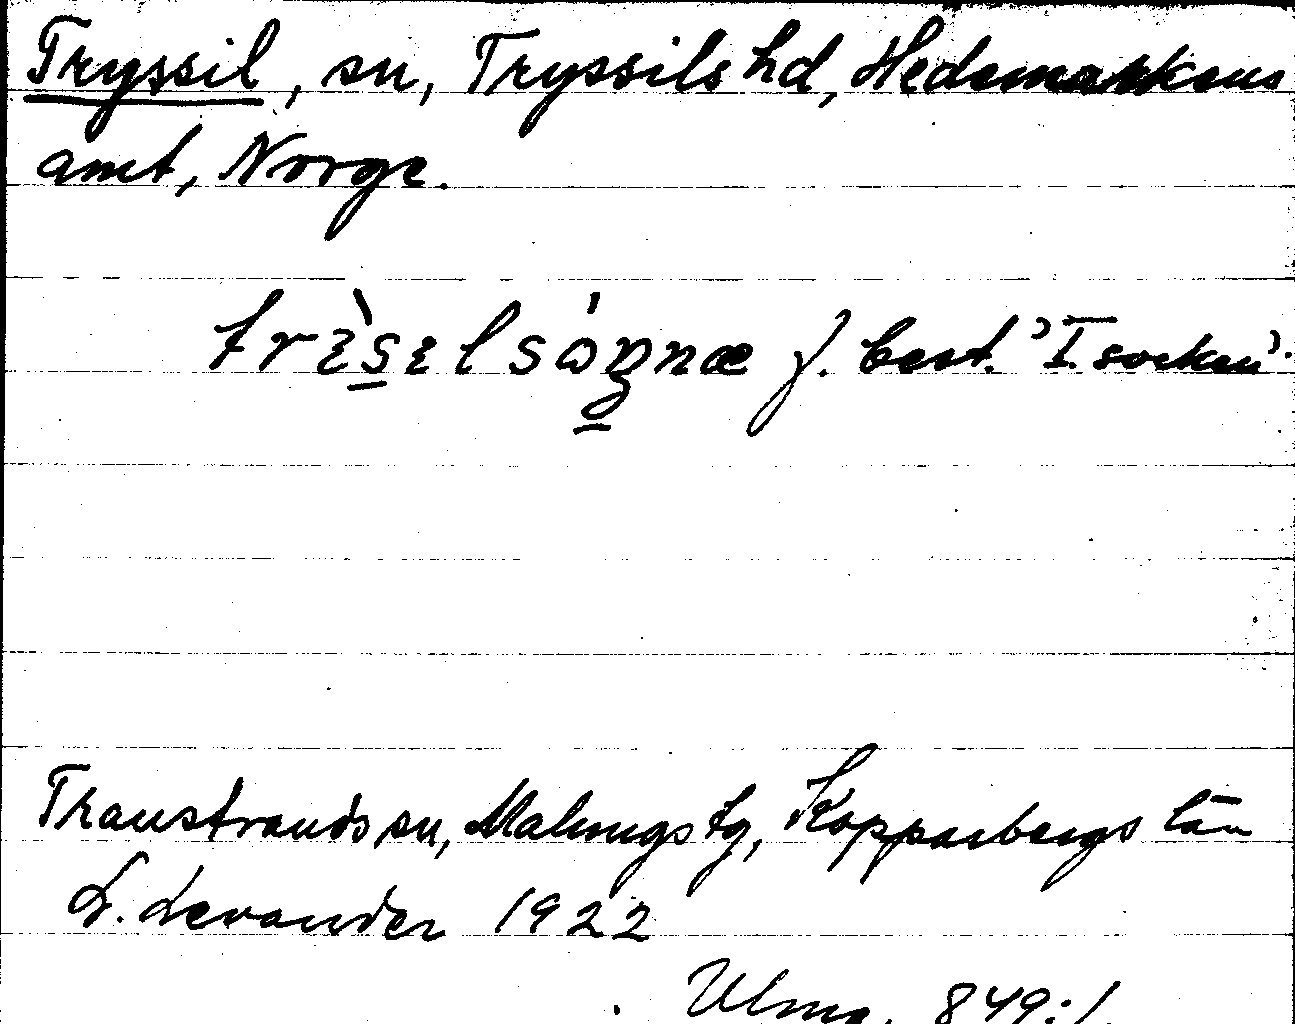 Tryssil, sn, Tryssils hd, Hedemarkens
amt, Norge.
f. best. 'T. socken'.
Transtrands sn, Malungs tg, Kopparbergs län
L. Levander 1922
Ulma. 849:1